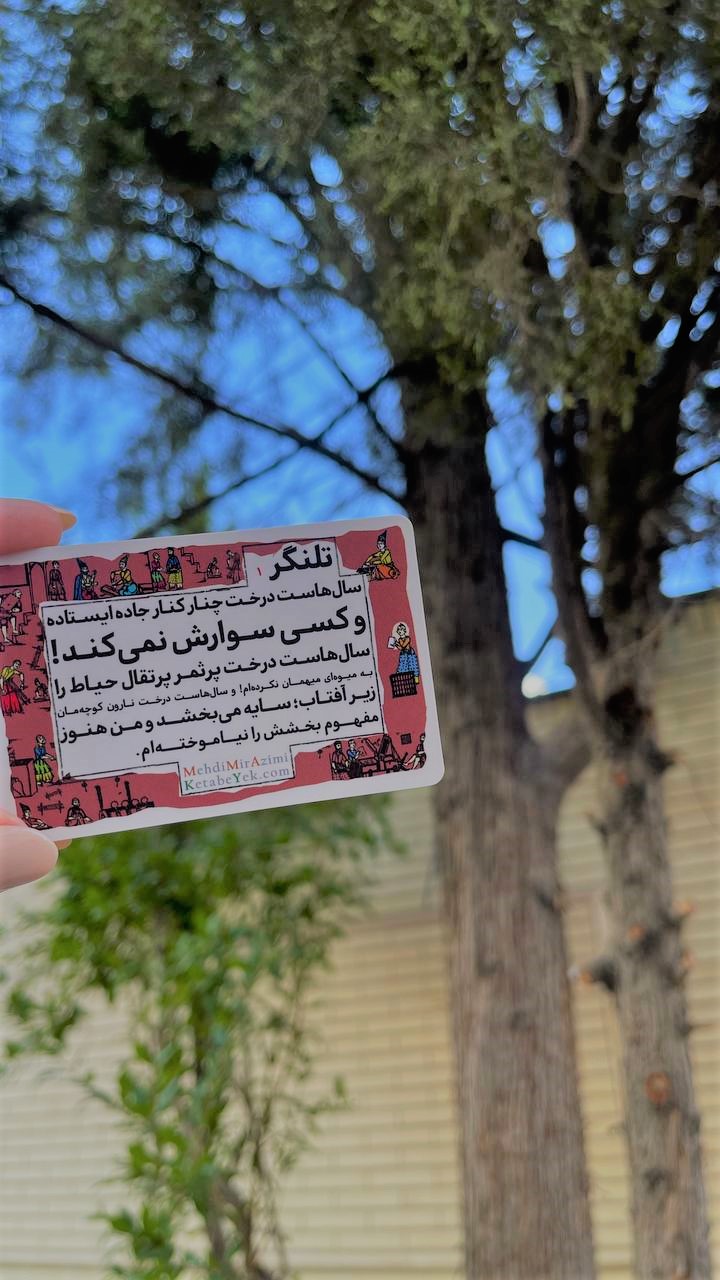 تلنگر ۱
سال‌هاست درخت چنار کنار جاده ایستاده
و کسی سوارش نمی‌کند!
سال‌هاست درخت پرثمر پرتقال حیاط را
به میوه‌ای میهمان نکرده‌ام! و سال‌هاست درخت نارون کوچه‌مان
زیر آفتاب؛ سایه می‌بخشد و من هنوز
مفهوم بخشش را نیاموخته‌ام.
MehdiMirAzimi
KetabeYek.com